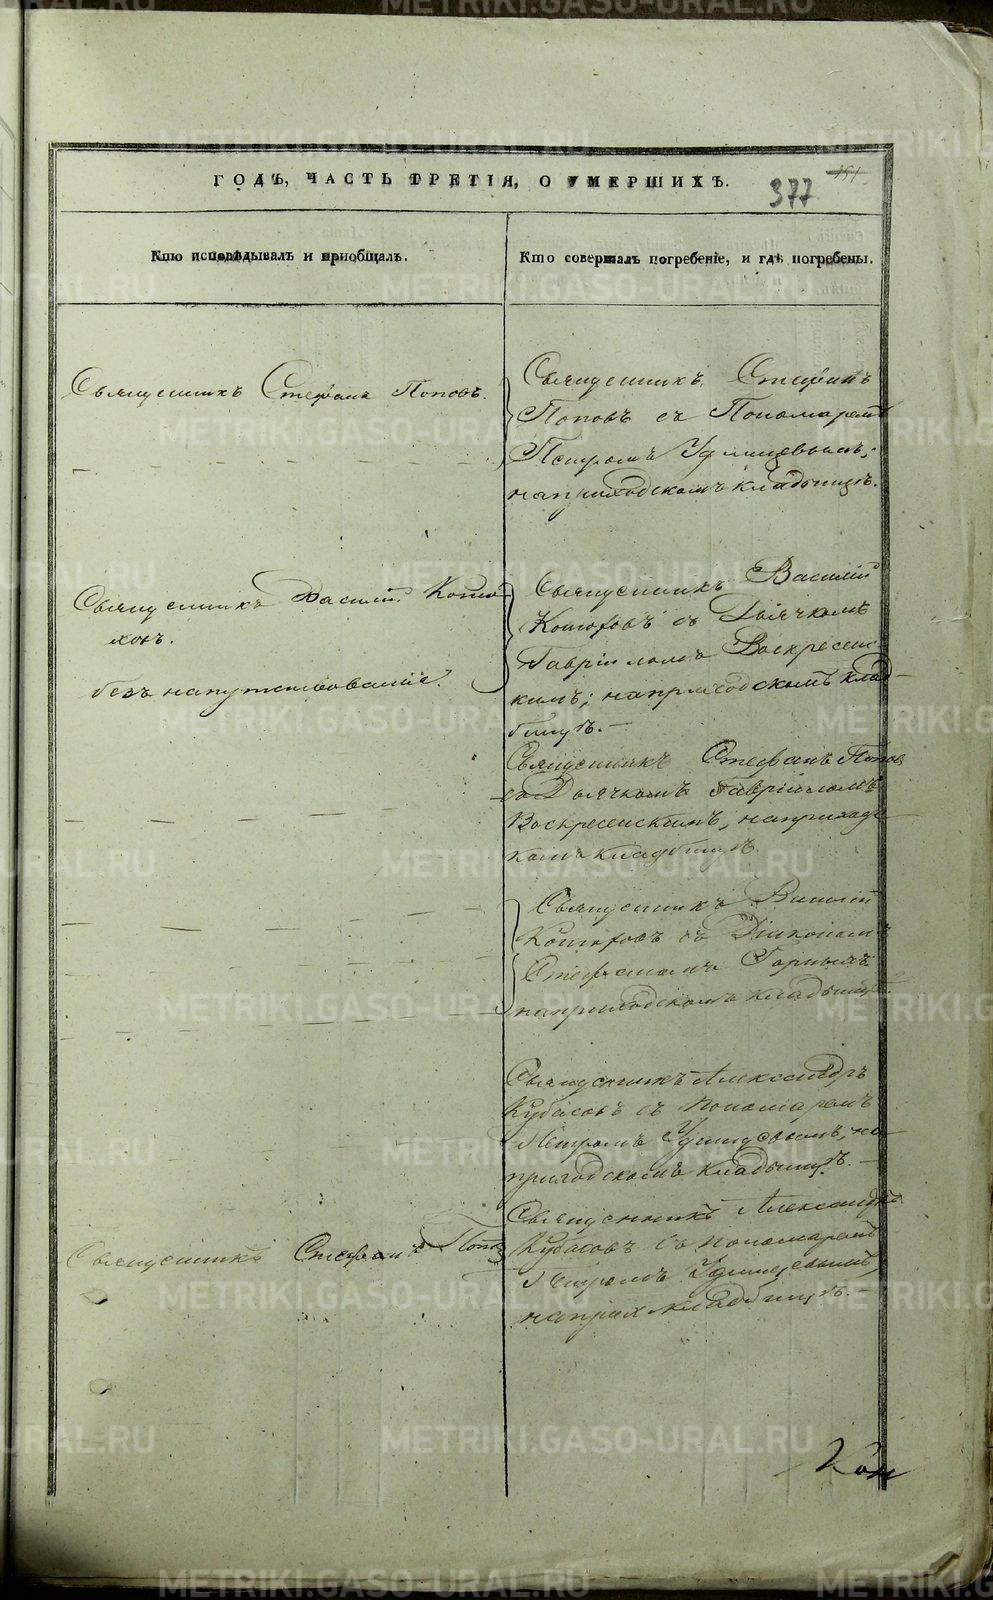 ГОДЪ, ЧАСТЬ ТРЕТІЯ, О УМЕРШИХЪ.
377
Кто исповѣдывалъ и пріобщалъ.
Кто совершалъ погребеніе, и гдѣ погребены.
Священникъ Стефанъ Поповъ.
Священникъ Стефанъ
Поповъ съ Пономаремъ
Петромъ
на приходскомъ кладбищѣ.
Священникъ Василій
без напутствованія.
Священникъ Василій
съ Дьячкомъ
Гавріиломъ Воскресен
скимъ; на приходскомъ клад
бищѣ.
Священникъ Стефанъ Попов
съ Дьячкомъ Гавріиломъ
Воскресенскимъ, на приходс
комъ кладбищѣ.
Священникъ Василій
съ Діакономъ
Стефаномъ
на приходскомъ кладбищѣ.
Священникъ Александръ
Кубасовъ съ пономаремъ
Петромъ на
приходскомъ кладбищѣ.
Священникъ Стефанъ Попов
Священникъ Александръ
Кубасовъ съ пономаремъ
Петромъ
на прих кладбищѣ.
METRIKI.GASO-URAL.RU